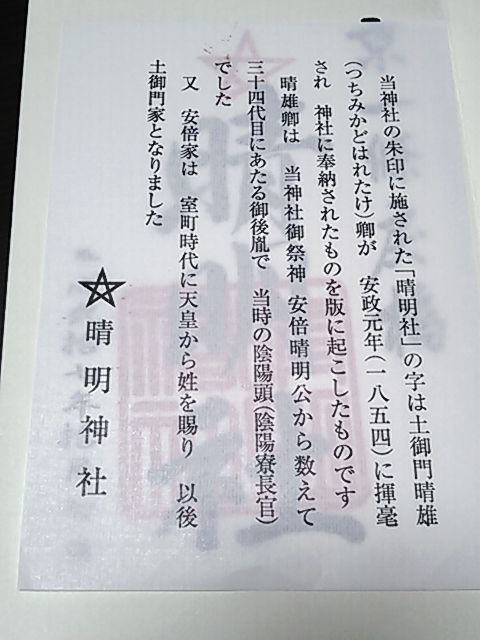 当神社の朱印に施された「晴明社」の字は土御門晴雄
(つちみかどはれたけ)卿が 安政元年(一八五四)に揮毫
され 神社に奉納されたものを版に起こしたものです
晴雄卿は 当神社御祭神 安倍晴明公から数えて
三十四代目にあたる御後胤で 当時の陰陽頭(陰陽寮長官)
でした
又 安倍家は 室町時代に天皇から姓を賜り 以後
土御門家となりました
晴明神社